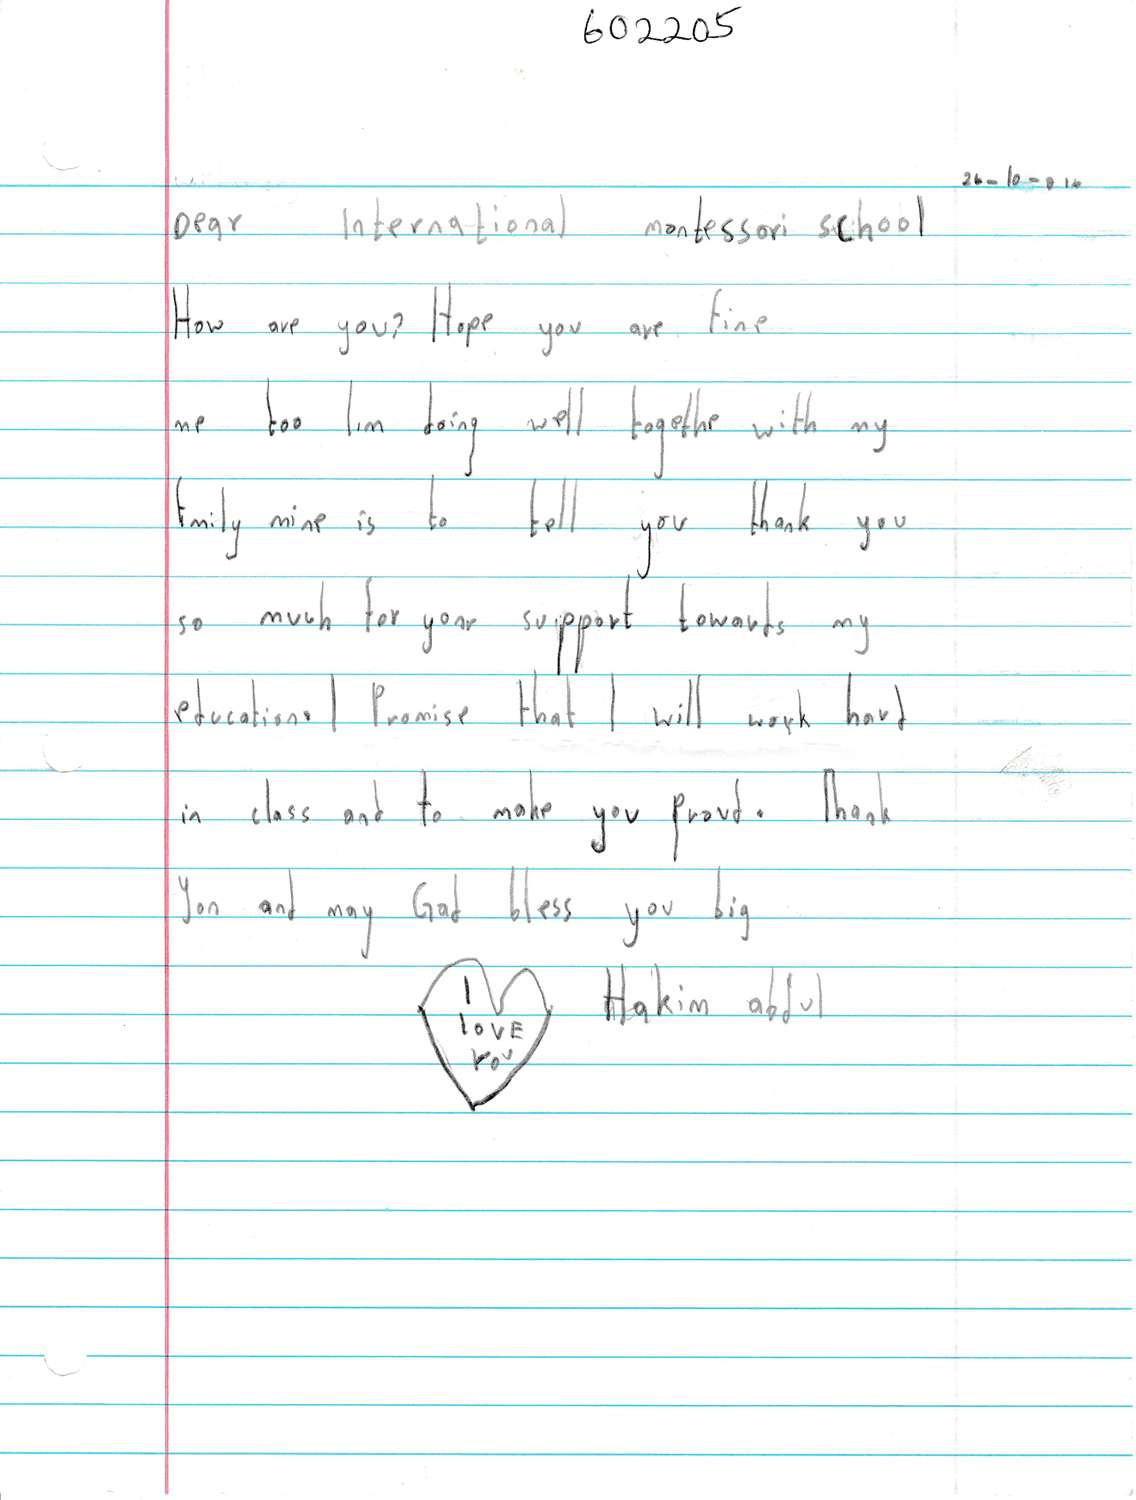 602205
Dear International montessori school
How are you? Hope you are fine
me too I.m doing well togethe with my
fmily mine is to tell you thank you
so much for your support towards my
education. I Promise that I will work hard
in class and to make you proud. Thank
You and may God bless you big
I
love
you
Hakim abdul